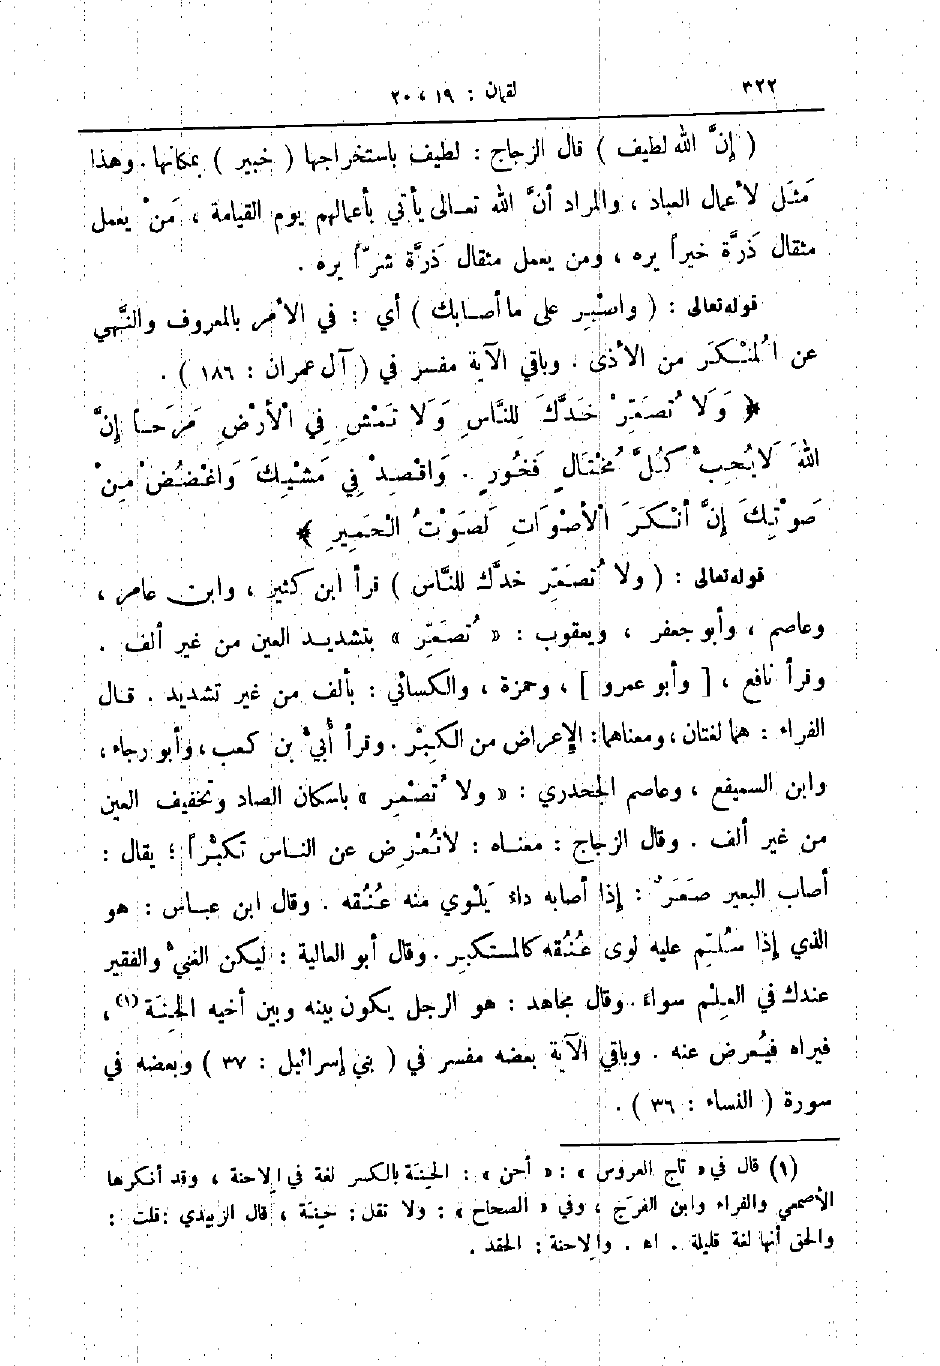 ٣٢٢ لقمان : ١٩ ، ٢٠
( إنَّ الله لطيف ) قال الزجاج : لطيف باستخراجها ( خبير ) بمكانها . وهذا
مَثَل لأعمال العباد ، والمراد أنَّ الله تعالى يأتي بأعمالهم يوم القيامة ، مَنْ يعمل
مثقال ذَرَّة خيراً يره ، ومن يعمل مثقال ذَرَّة شرّاً يره .
قوله تعالى : ( واصْبِر على ما أصابك ) أي : في الأمر بالمعروف والنَّهي
عن المُنْكَر من الأذى . وباقي الآية مفسر في ( آل عمران : ١٨٦ ) .
﴿ وَلَا تُصَعِّرْ خَدَّكَ لِلنَّاسِ وَلَا تَمْشِ فِي الْأَرْضِ مَرَحاً إِنَّ
اللهَ لَا يُحِبُّ كُلَّ مُخْتَالٍ فَخُورٍ . وَاقْصِدْ فِي مَشْيِكَ وَاغْضُضْ مِنْ
صَوْتِكَ إِنَّ أَنْكَرَ الْأَصْوَاتِ لَصَوْتُ الْحَمِيرِ ﴾
قوله تعالى : ( ولا تُصَعِّر خدَّك للنَّاس ) قرأ ابن كثير ، وابن عامر ،
وعاصم ، وأبو جعفر ، ويعقوب : « تُصَعِّر » بتشديد العين من غير ألف .
وقرأ نافع ، [ وأبو عمرو ] ، وحمزة ، والكسائي : بألف من غير تشديد . قال
الفراء : هما لغتان ، ومعناهما : الإعراض من الكِبْر . وقرأ أُبيّ بن كعب ، وأبو رجاء ،
وابن السميفع ، وعاصم الجحدري : « ولا تُصْعِر » باسكان الصاد وتخفيف العين
من غير ألف . وقال الزجاج : معناه : لا تُعْرِض عن الناس تكبُّراً ؛ يقال :
أصاب البعير صَعَرٌ : إذا أصابه داء يَلْوي منه عُنُقه . وقال ابن عباس : هو
الذي إذا سُلِّم عليه لوى عُنُقه كالمستكبِر . وقال أبو العالية : ليكن الغنيّ والفقير
عندك في العِلْم سواء . وقال مجاهد : هو الرجل يكون بينه وبين أخيه الحِنَة (١) ،
فيراه فيُعرض عنه . وباقي الآية بعضه مفسر في ( بني إسرائيل : ٣٧ ) وبعضه في
سورة ( النساء : ٣٦ ) .
(١) قال في « تاج العروس » : « أحن » : الحِنَة بالكسر لغة في الإحنة ، وقد أنكرها
الأصمعي والفراء وابن الفرَج ، وفي « الصحاح » : ولا تقل : حِنَة ، قال الزبيدي : قلت :
والحق أنها لغة قليلة . اه . والإحنة : الحقد .